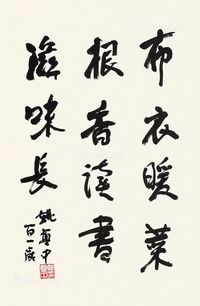 布衣暖菜
根香读书
滋味长
姚奠中
百一岁